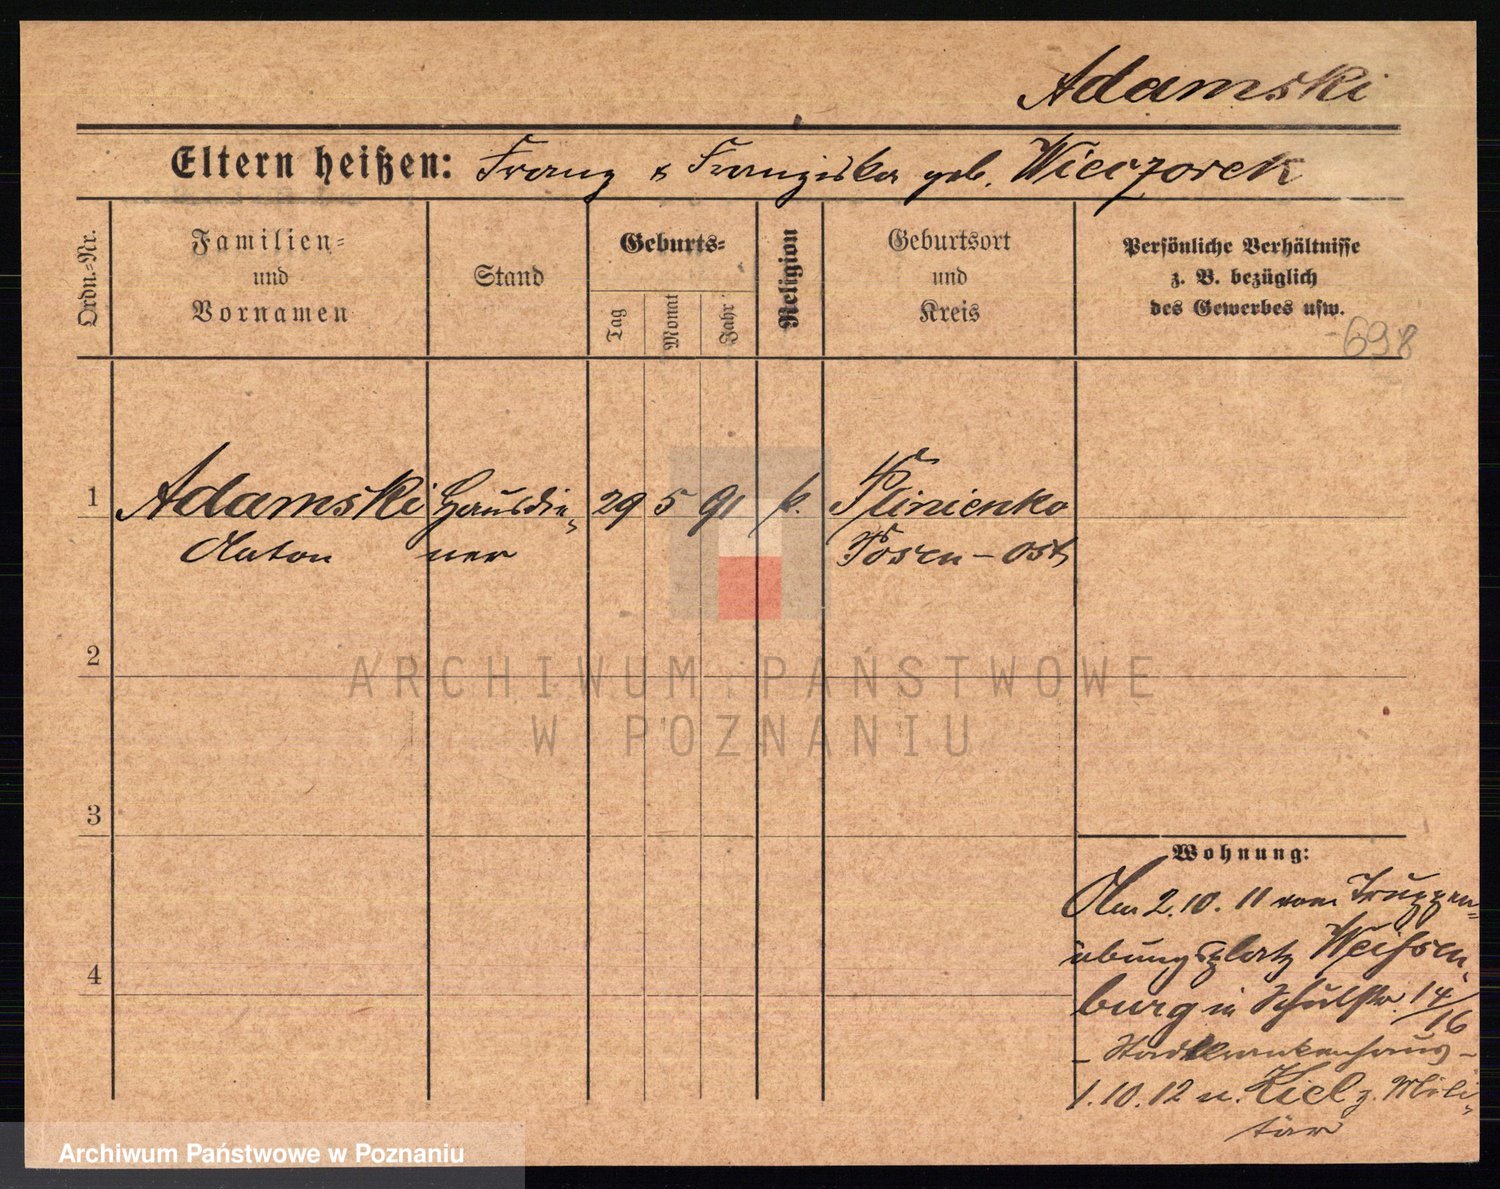 Adamski
Eltern heißen: Franz & Franziska geb. Wieczorek
Ordn.-Nr.
Familien-
und
Vornamen
Stand
Geburts-
Tag
Monat
Jahr
Religion
Geburtsort
und
Kreis
Persönliche Verhältnisse
z. B. bezüglich
des Gewerbes usw.
698
1 Adamski Hausdie- 29 5 91 k. Glinienko
Anton ner Posen-Ost
2
ARCHIWUM PAŃSTWOWE
W POZNANIU
3
Wohnung:
Am 2.10.11 vom Truppen-
übungsplatz Weißen-
4
burg in Schulstr. 14/16
- Stadtkrankenhaus -
1.10.12 n. Kiel z. Mili-
tär
Archiwum Państwowe w Poznaniu